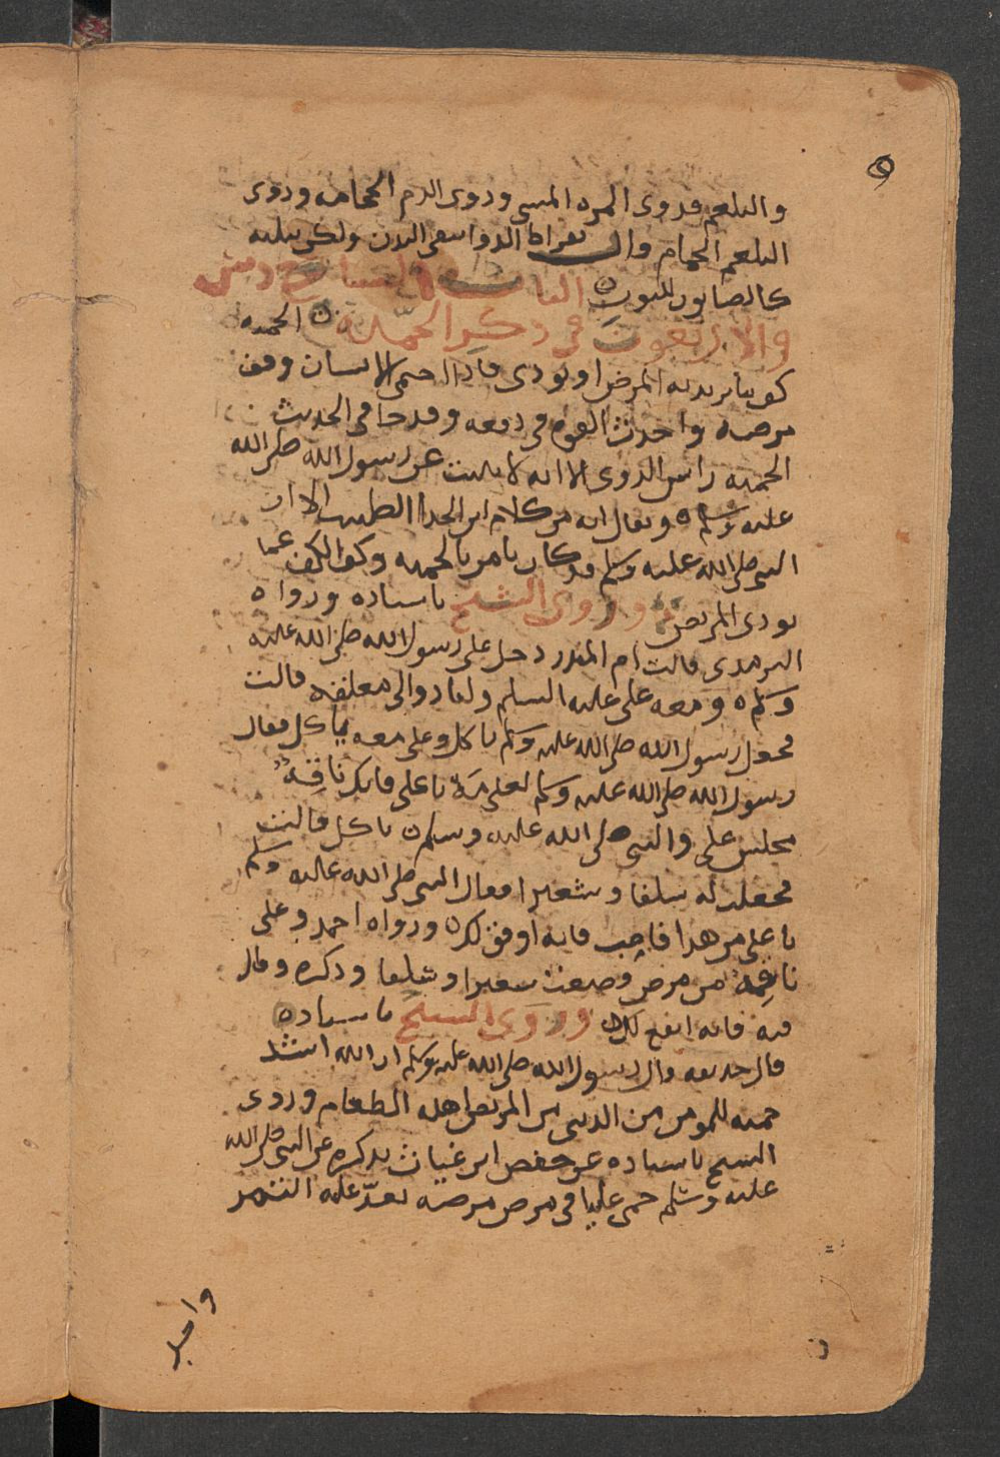 والبلغم فدوى المره المشي ودوى الدم الحجامه ودوى
البلغم الحمام وقال بقراط الدوا ينقي البدن ولكن يبليه
كالصابون للثوب الباب السادس
والاربعون في ذكر الحميه الحميه
كف ما يزيد به المرض او يودي فاذا احتمى الانسان وقف
مرضه واخذت القوه في دفعه وقد جا في الحديث
الحميه راس الدوى الا انه لا يثبت عن رسول الله صلى الله
عليه وسلم ويقال انه من كلام الطبيب الا ان
النبي صلى الله عليه وسلم قد كان يامر بالحميه وكف الكف عما
يودي المريض وروى الشيخ باسناده ورواه
الترمذي قالت ام المنذر دخل على رسول الله صلى الله عليه
وسلم ومعه علي عليه السلم ولنا دوالي معلقه قالت
فجعل رسول الله صلى الله عليه وسلم ياكل وعلي معه ياكل فقال
رسول الله صلى الله عليه وسلم لعلي مه يا علي فانك ناقه
فجلس علي والنبي صلى الله عليه وسلم ياكل قالت
فجعلت له سلقا وشعيرا فقال النبي صلى الله عليه وسلم
يا علي من هذا فاصب فانه اوفق لك ورواه احمد وعلي
ناقه من مرض وصنعت شعيرا وسلقا وذكره وقال
فيه فانه انفع لك وروى الشيخ باسناده
قال حذيفه قال رسول الله صلى الله عليه وسلم ان الله اشد
حميه للمومن من الدنيا من المريض اهله الطعام وروى
الشيخ باسناده عن حفص ابن غياث يذكره عن النبي صلى الله
عليه وسلم حمى عليا في مرض مرضه